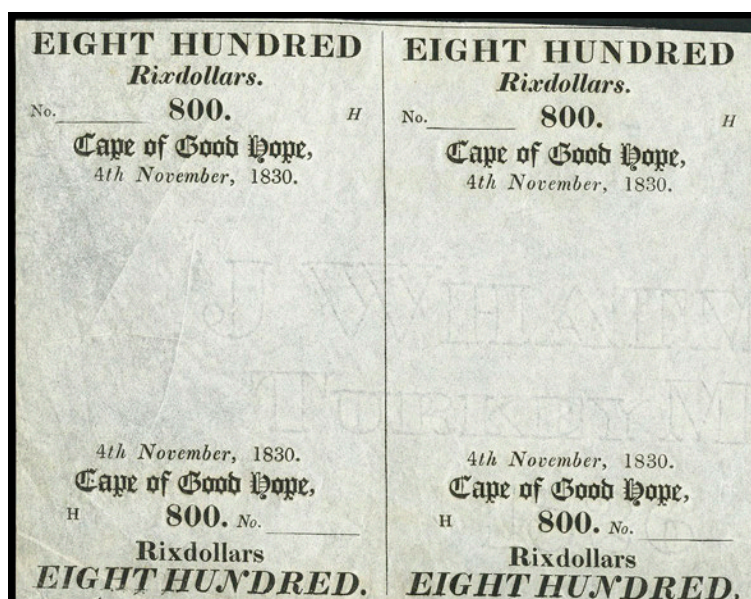 EIGHT HUNDRED
Rixdollars.
No. 800. H
Cape of Good Hope,
4th November, 1830.
4th November, 1830.
Cape of Good Hope,
H 800. No.
Rixdollars
EIGHT HUNDRED.
EIGHT HUNDRED
Rixdollars.
No. 800. H
Cape of Good Hope,
4th November, 1830.
4th November, 1830.
Cape of Good Hope,
H 800. No.
Rixdollars
EIGHT HUNDRED.